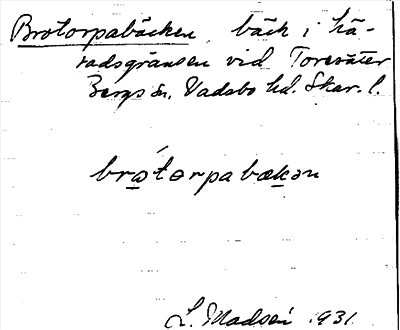 Brotorpabäcken, bäck i hä-
radsgränsen vid Toresäter
Bergs sn, Vadsbo hd. Skar. l.
brotərpabækən
L. Madsén 1931